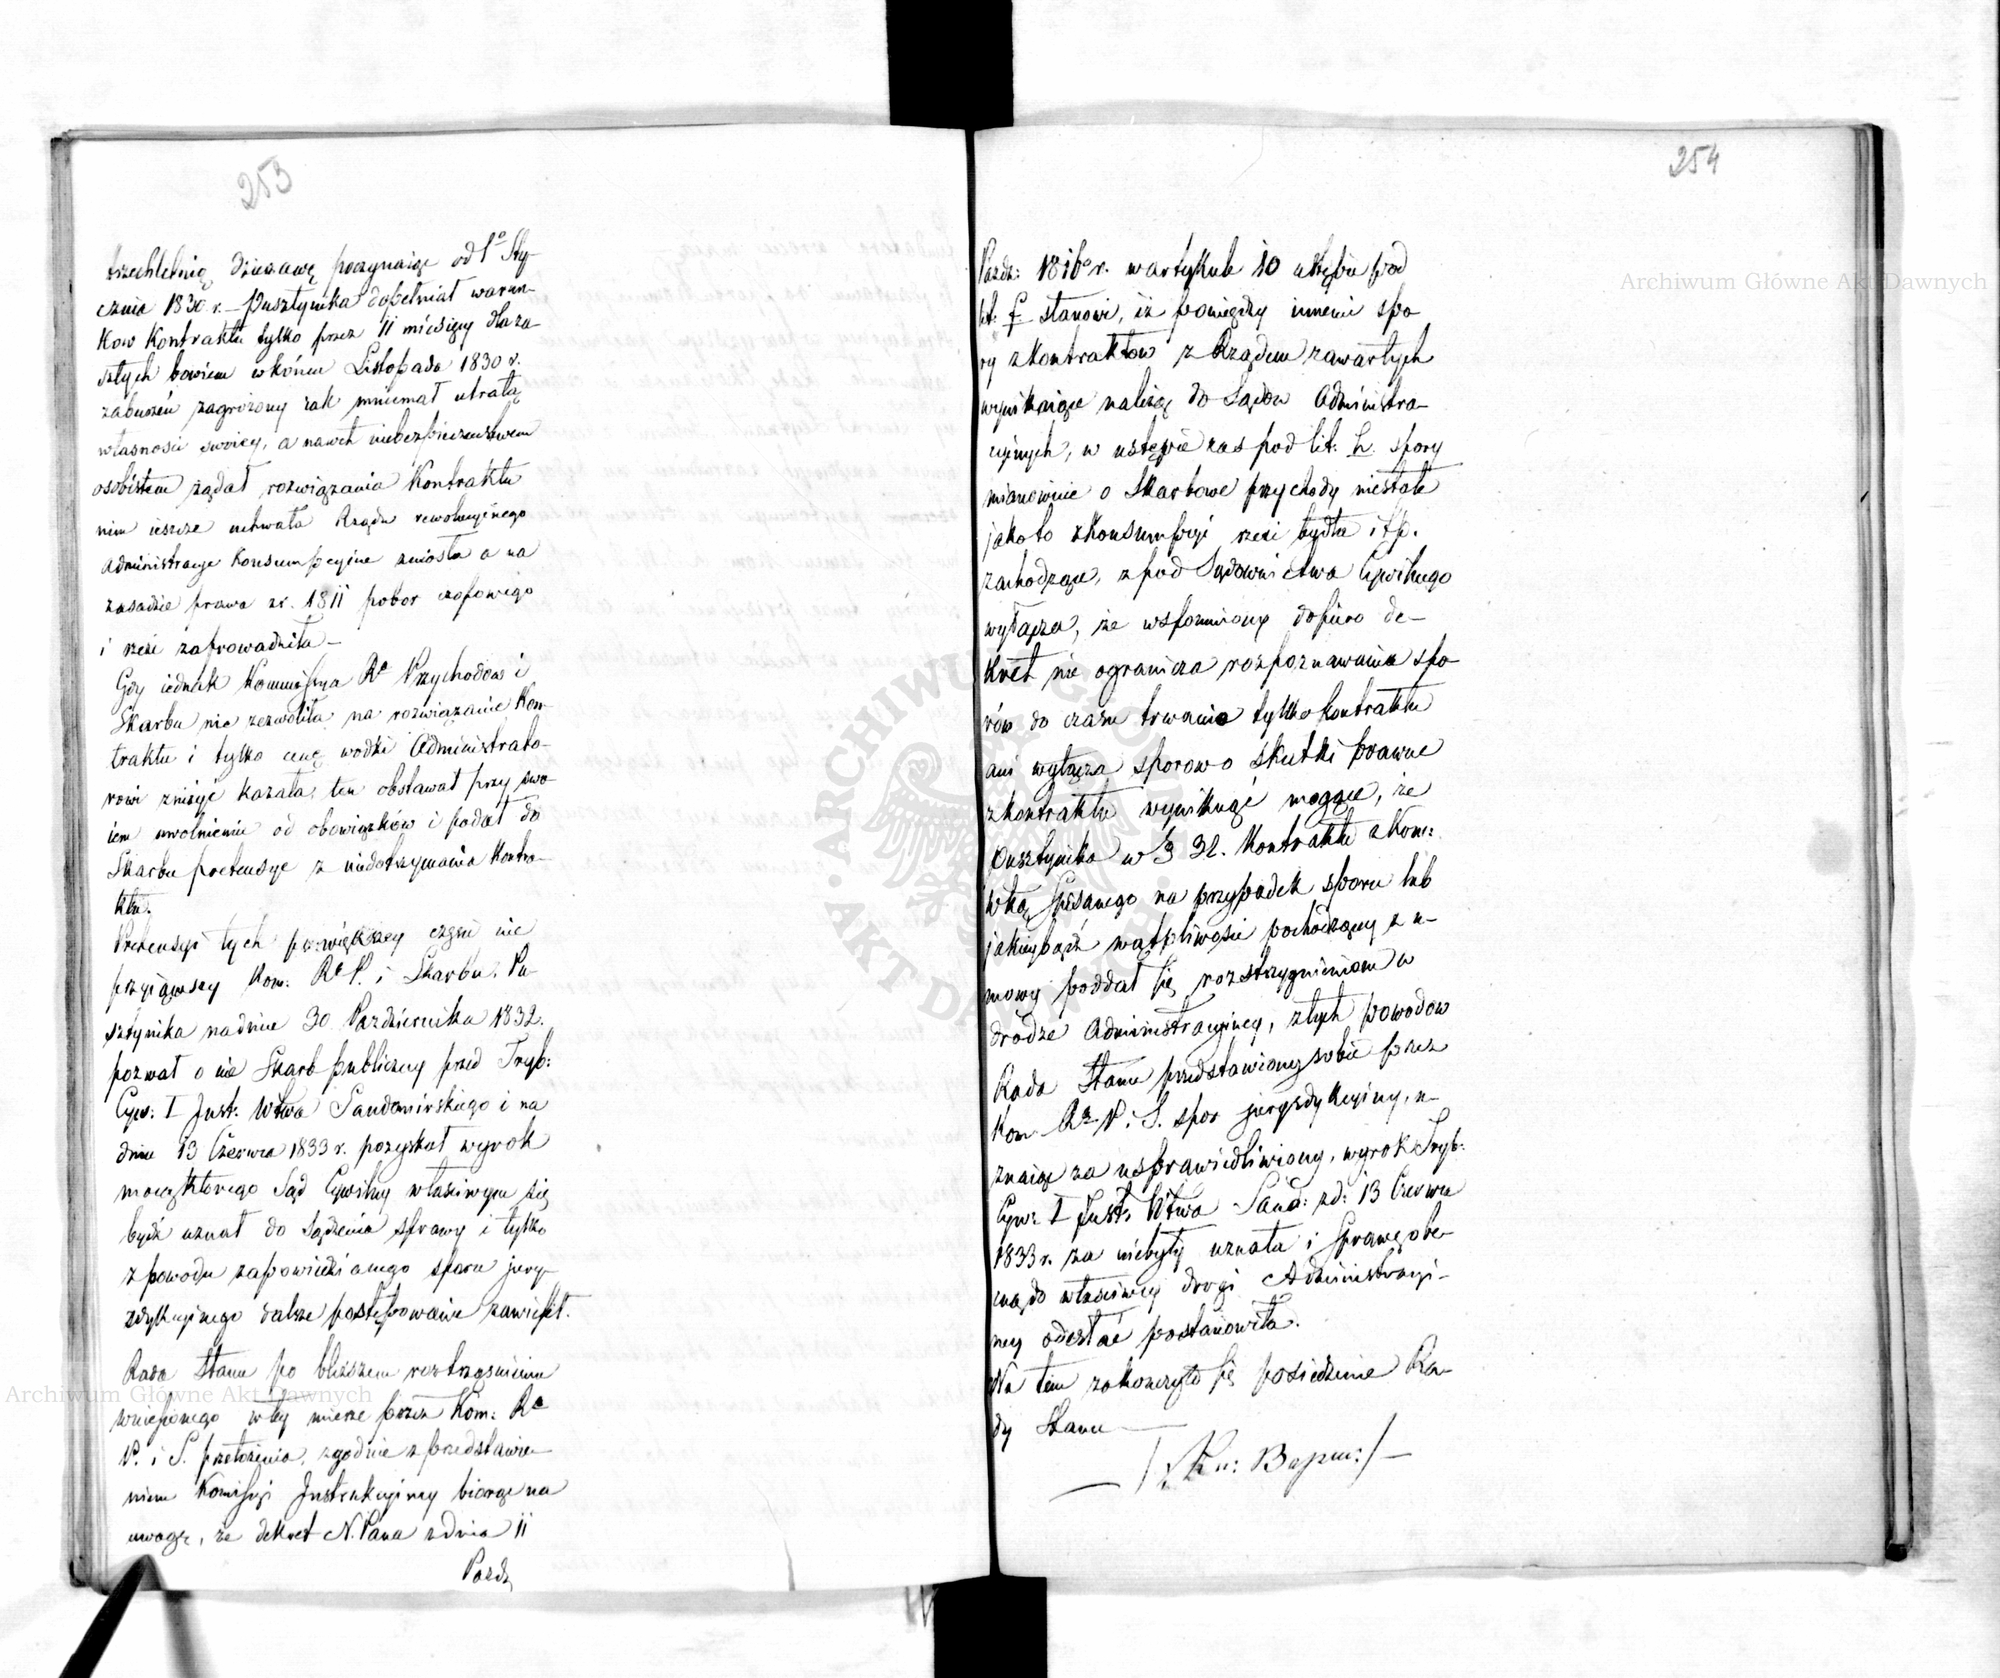 253
trzechletnią dzierżawę poczynaiąc od 1º Sty-
cznia 1830 r. – Pusztynika dopełniał warun-
kow Kontraktu tylko przez 11 miesięcy dla za-
szłych bowiem w końcu Listopada 1830 r.
zaburzeń zagrożony iak mniemał utratą
własności swoiey, a nawet niebezpieczeństwem
osobistem żądał rozwiązania Kontraktu
nim ieszcze uchwała Rządu rewolucyinego
Administracye Konsumpcyine zniosła a na
zasadzie prawa z r. 1811 pobor czopowego
i rzezi zaprowadziła –
Gdy iednak Kommissya Rª Przychodów i
Skarbu nie zezwoliła na rozwiązanie Kon-
traktu i tylko cenę wodki Administrato-
rowi zniżyć kazała, ten obstawał przy swo-
iem uwolnieniu od obowiązków i podał do
Skarbu pretensye z niedotrzymania Kontra-
ktu.
Pretensyi tych po większey części nie
przyiąwszy Kom: Rª P. i Skarbu. Pu-
sztynika na dniu 30 Października 1832.
pozwał o nie Skarb publiczny przed Tryb:
Cyw: I Inst: Wtwa Sandomirskiego i na
dniu 13 Czerwca 1833 r. pozyskał wyrok
mocą którego Sąd Cywilny właściwym się
bydź uznał do sądzenia sprawy i tylko
z powodu zapowiedzianego sporu jury-
zdykcyinego dalsze postępowanie zawiesił.
Rada Stanu po bliższem roztrząśnieniu
wniesionego w tey mierze przez Kom: Rª
P. i S. przełożenia, zgodnie z przedstawie-
niem Komissyi Instrukcyiney biorąc na
uwagę, że dekret N. Pana z dnia 11
Pazdz
254
Pazdz: 1816º r. w artykule 10 ustępie pod
lit: f. stanowi, iż pomiędzy innemi spo
ry z kontraktów z Rządem zawartych
wynikaiące należą do Sądów Administra-
cyinych, w ustępie zas pod lit. h. spory
mianowicie o Skarbowe przychody niestałe
jako to z Konsumpcyi rzezi bydła itp.
zachodzące, z pod Sądownictwa Cywilnego
wyłącza, że wspomniony dopiero de-
kret nie ogranicza rozpoznawania spo-
rów do czasu trwania tylko kontraktu
ani wyłącza sporow o skutki prawne
z kontraktu wyniknąć mogące, że
Pusztynika w § 32. Kontraktu z Kom:
Wtką spisanego na przypadek sporu lub
jakieybądź wątpliwości pochodzącey z u-
mowy poddał się rozstrzygnieniom w
drodze Administracyiney, z tych powodow
Rada Stanu przedstawiony sobie przez
Kom Rª P. i S. spor jurysdykcyiny, u-
znaiąc za usprawiedliwiony, wyrok Tryb:
Cyw: I Inst: Wtwa Sand: z d: 13 Czerwca
1833 r. za niebyły uznała i Sprawę obe-
cną do właściwey drogi Administracyi-
ney odesłać postanowiła.
Na tem zakończyło się posiedzenie Ra-
dy Stanu